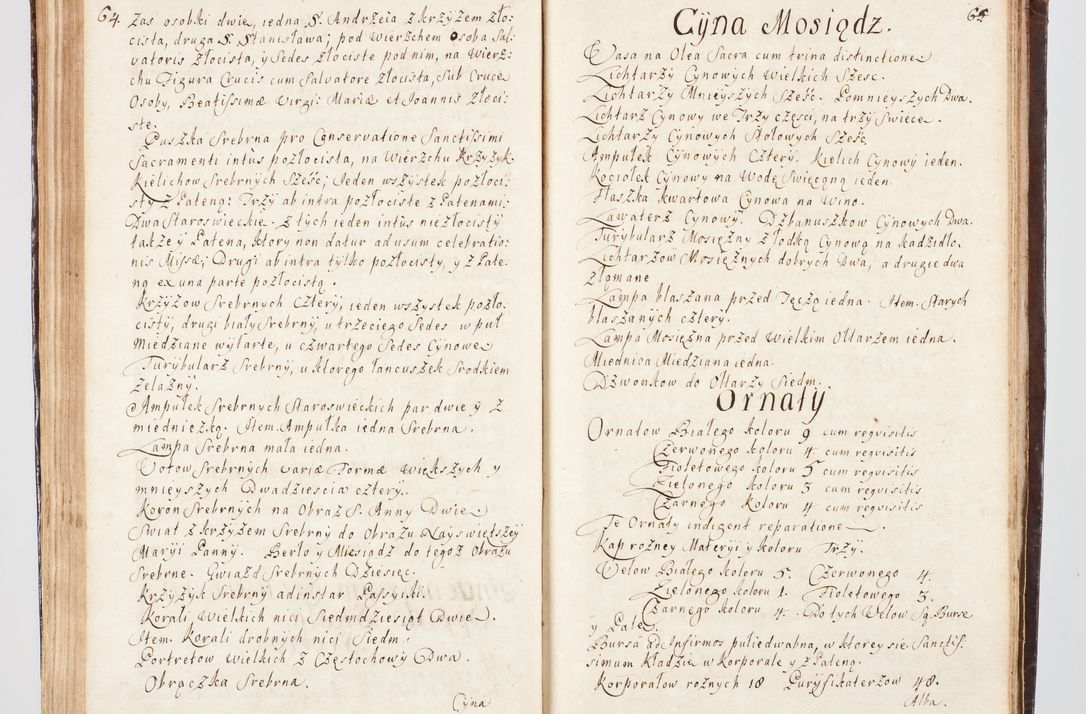 64.
Zas osobki dwie, iedna S. Andrzeia z krzyżem zło:
cista, druga S. Stanisława; pod wierzchem osoba Sal:
vatoris złocista, y Sedes złociste pod nim, na wierz:
chu Figura Crucis cum Salvatore złocista, Sub Cruce
Osoby, Beatissimæ Virgi: Mariæ et Joannis złoci:
ste.
Puszka Srebrna pro Conservatione Sanctissimi
Sacramenti intus pozłocista, na Wierzchu krzyżyk.
Kielichow Srebrnych Sześć; Jeden wszystek pozłoci:
sty z Pateną: Trzy ab intra pozłociste z Patenami:
Dwa Staroswieckie. z tych ieden intus niezłocisty
także y Patena, ktory non datur ad usum celebratio:
nis Missæ; Drugi ab intra tylko pozłocisty, y z Pate:
ną ex una parte pozłocistą.
Krzyżow Srebrnych Cztery, ieden wszystek pozło:
cisty, drugi biały Srebrny, u trzeciego Sedes w puł
Miedziane wytarte, u czwartego Sedes Cynowe
Turybularz Srebrny, u ktorego łancuszek Srodkiem
żelazny.
Ampułek Srebrnych Staroswieckich par dwie y z
miedniczką. Item. Ampułka iedna Srebrna.
Lampa Srebrna mała iedna.
Votow Srebrnych variæ Formæ Większych y
mnieyszych Dwadziescia cztery.
Koron Srebrnych na Obraz S. Anny Dwie
Swiat z krzyżem Srebrny do Obrazu Nayswiętszey
Maryi Panny. Berło y Miesiądz do tegoż Obrazu
Srebrne. Gwiazd Srebrnych Dziesięc.
Krzyżyk Srebrny adinstar Passyiki.
Korali Wielkich nici Siedmdziesiąt Dwie.
Item. Korali drobnych nici Siedm.
Portretow Wielkich z Częstochowy Dwa.
Obrączka Srebrna.
Cyna
65.
Cyna Mosiądz.
Vasa na Olea Sacra cum trina distinctione
Lichtarzy Cynowych Wielkich Szesc.
Lichtarzy Mnieyszych Sześć. Pomnieyszych Dwa.
Lichtarz Cynowy we Trzy częsci, na trzy Swiece.
Lichtarzy Cynowych Stołowych Sześć
Ampułek Cynowych Cztery. Kielich Cynowy ieden.
Kociołek Cynowy na Wodę Swięconą ieden.
Flaszka kwartowa Cynowa na Wino.
Lawaterz Cynowy. Dzbanuszkow Cynowych Dwa.
Turybularz Mosiężny z łodką Cynową na kadzidło.
Lichtarzow Mosiężnych dobrych Dwa, a drugie dwa
złomane
Lampa blaszana przed Tęczą iedna. Item. Starych
blaszanych cztery.
Lampa Mosiężna przed Wielkim Ołtarzem iedna.
Miednica Miedziana iedna.
Dzwonkow do Ołtarzy Siedm.
Ornaty
Ornatow Białego koloru 9 cum requisitis
Czerwonego koloru 4. cum requisitis
Fioletowego koloru 5 cum requisitis
Zielonego koloru 5 cum requisitis
Czarnego Koloru 4 cum requisitis
Te Ornaty indigent reparatione.
Kap rożney Materyi y koloru Trzy.
Velow Białego koloru 5. Czerwonego 4.
Zielonego koloru 1. Fioletowego 5.
Czarnego koloru 4. Do tych Velow Są Burse
y Palle.
Bursa ad Infirmos pułiedwabna, w ktorey się Sanctis:
simum kładzie w korporale y z Pateną.
Korporałow rożnych 18 Puryfikaterzow 48.
Alba.